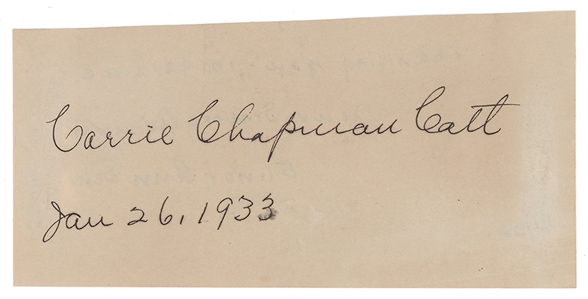 Carrie Chapman Catt
Jan 26, 1933